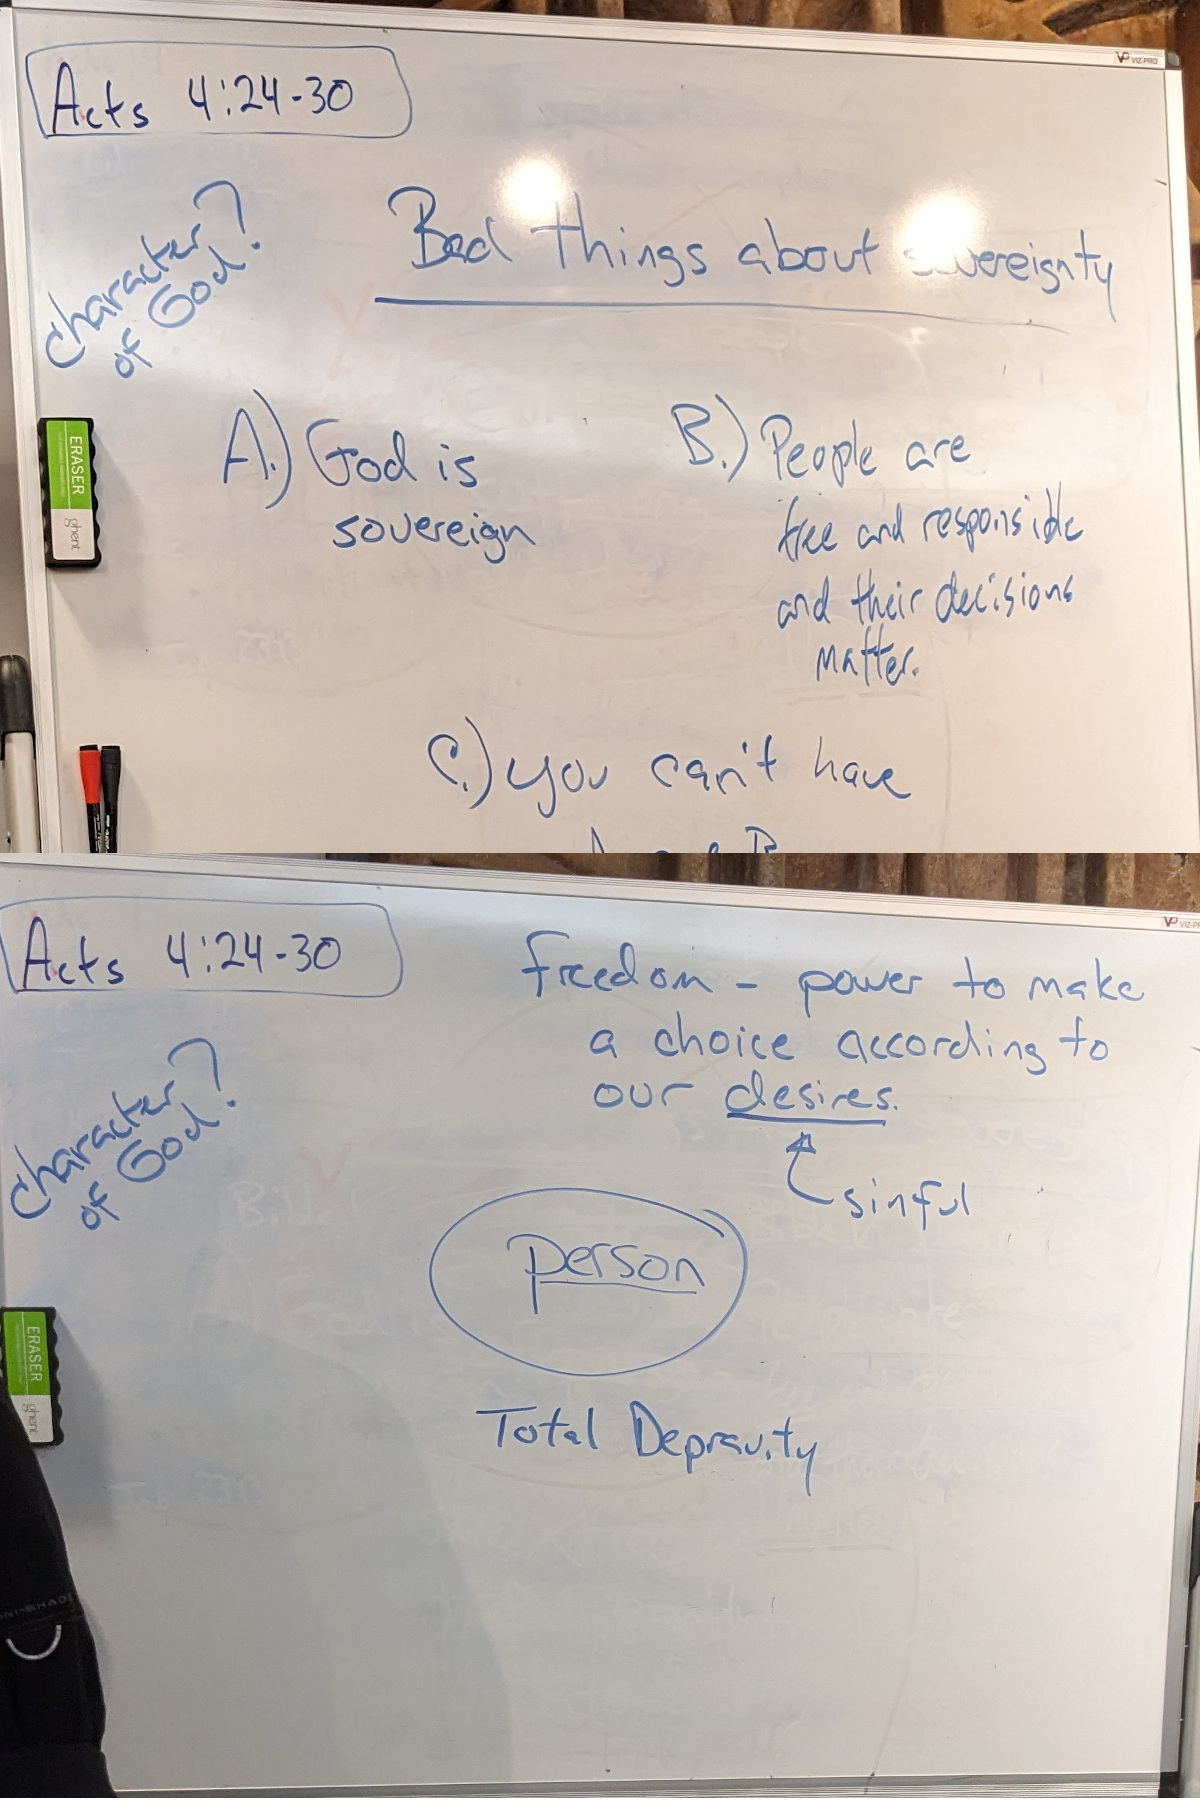 VIZ-PRO
Acts 4:24-30
character?
of God?
Bad things about sovereignty
A.) God is
sovereign
B.) People are
free and responsible
and their decisions
matter.
ERASER
ghent
C.) you can't have
Acts 4:24-30
character?
of God?
freedom - power to make
a choice according to
our desires.
sinful
person
Total Depravity
ERASER
ghent